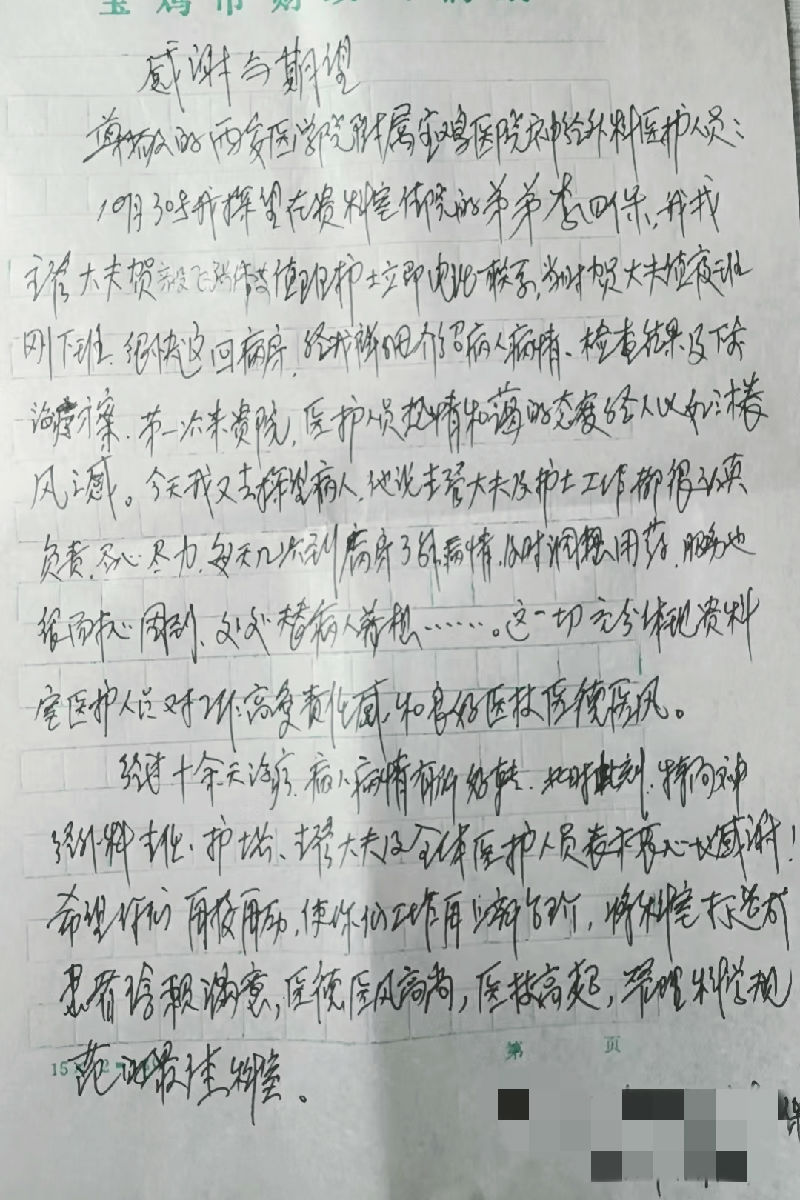 感谢与期望
尊敬的西安医学院附属宝鸡医院神经外科医护人员：
10月30号我探望在贵科室住院的弟弟李四保，我找
主管大夫贺 值班护士立即电话联系，当时贺大夫值夜班
刚下班，很快返回病房，给我详细介绍病人病情、检查结果及下步
治疗方案。第一次来贵院，医护人员热情和蔼的态度给人以如沐春
风之感。今天我又去探望病人，他说主管大夫及护士工作都很认真
负责，尽心尽力，每天几次到病房了解病情，及时调整用药，服务也
很 心周到、处处替病人着想……。这一切充分体现贵科
室医护人员对工作高度责任感，和良好医技医德医风。
经过十余天治疗，病人病情有所好转，此时此刻，特向神
经外科主任、护士长、主管大夫及全体医护人员表示衷心地感谢！
希望你们再接再励，使你们工作再上新台阶，将科室打造成
患者信赖满意，医德医风高尚，医技高超，管理科学规
范的最佳科室。
第 页